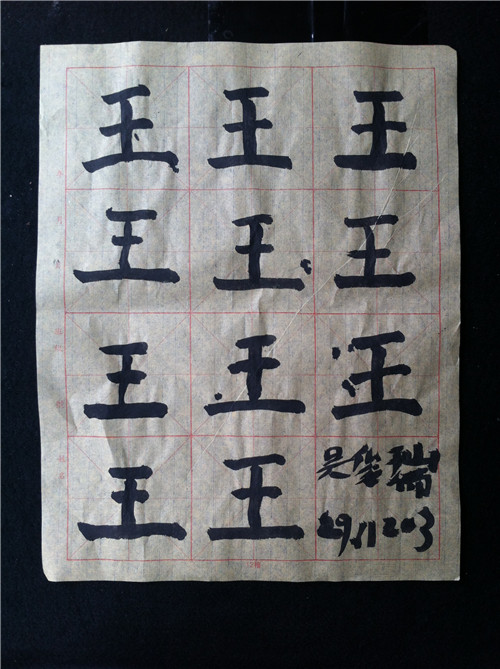 王 王 王
王 王 王
王 王 汪
王 王 吴 瑞
29.11 203